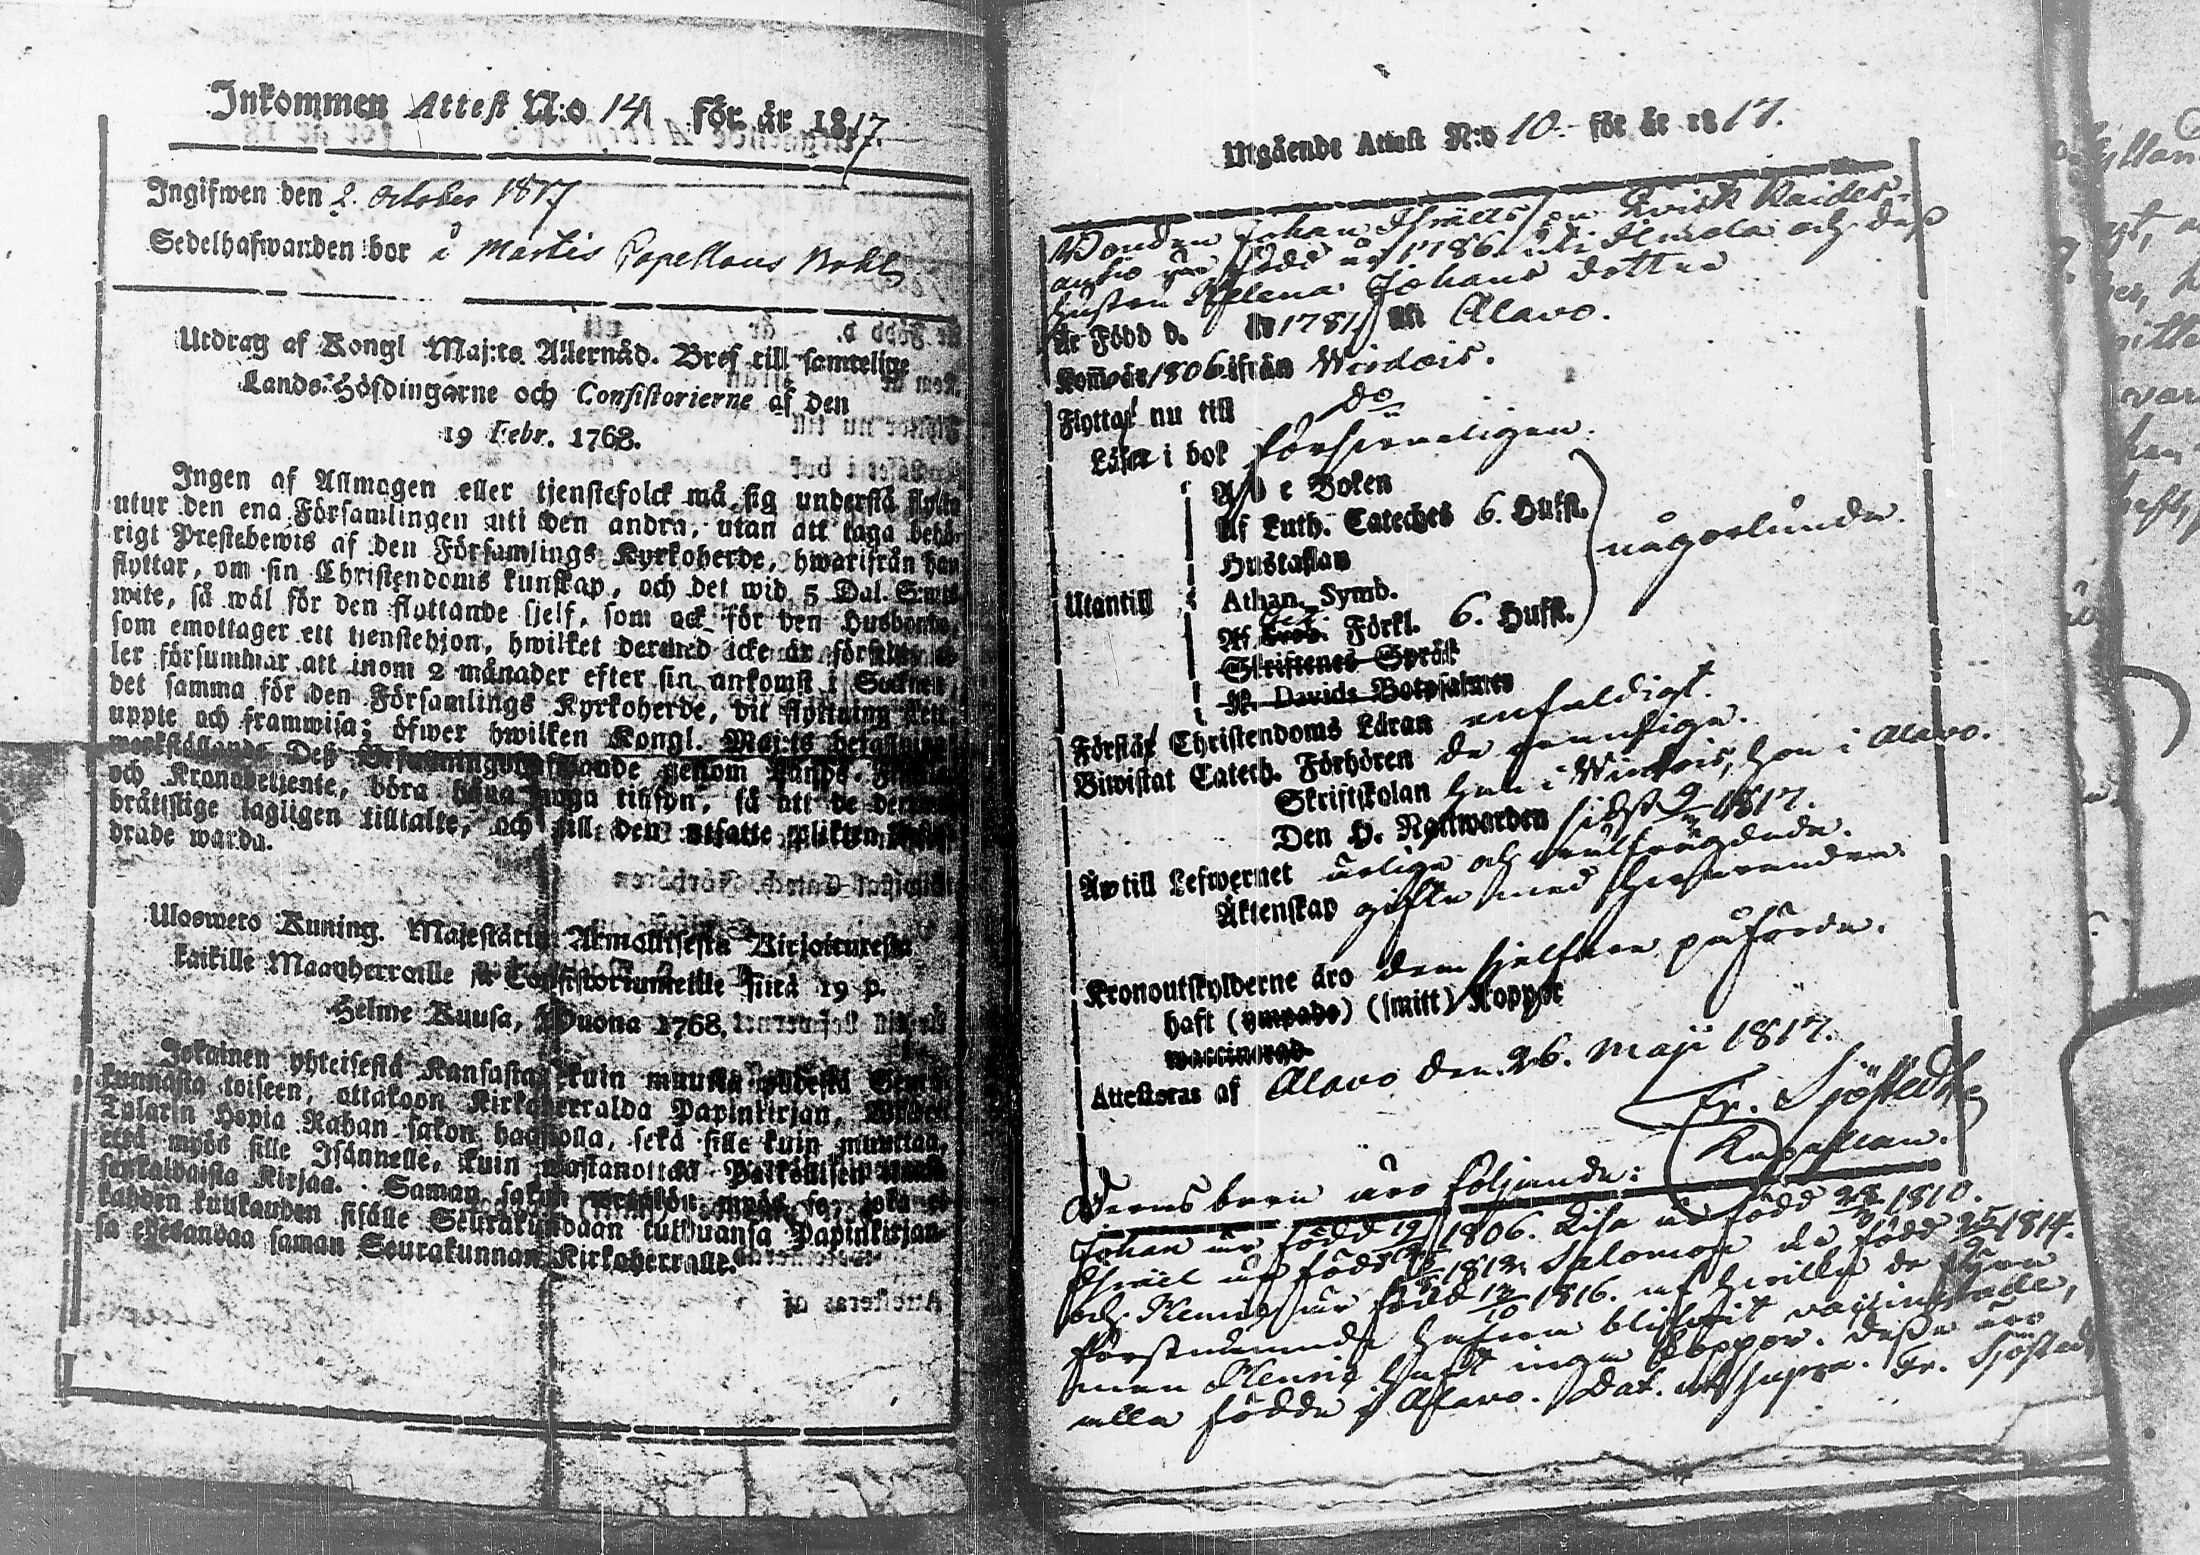 Inkommen Attest N:o 14 för år 1817.
Ingifwen den 2. October 1817
Sedelhafwanden bor i Martis
Utdrag af Kongl Maj:ts Allernåd. Bref till samtelige
Lands-Höfdingarne och Consistorierne af den
19 Febr. 1768.
Ingen af Allmogen eller tjenstefolck må sig understå flytta
utur den ena Församlingen uti den andra, utan att taga behö-
rigt Prestebewis af den Församlings Kyrkoherde, hwarifrån han
flyttar, om sin Christendoms kunskap, och det wid 5 Dal. S:mts
wite, så wäl för den flyttande sjelf, som ock för den Husbonde,
som emottager ett tjenstehjon, hwilket dermed icke är
ler försummar att inom 2 månader efter sin ankomst i Socknen
det samma för den Församlings Kyrkoherde, dit flyttning sker,
uppte och framwisa; öfwer hwilken Kongl. Maj:ts
werkställande Deß genom
och Kronobetjente, böra noga tillsyn, så att de
brättslige lagligen tilltalte, och till den utsatte plikten
drade warda.
Ulosweto Kuning. Majestätin Armollisesta Kirjoituresta
kaikille Maanherroille ja Consistoriumeille siitä 19 p.
Helme Kuusa, Wuona 1768.
Jokainen yhteisestä Kansasta, kuin muutta yhdestä Seura-
kunnasta toiseen, ottakoon Kirkoherralda Papinkirjan, Wiiden
Talarin Hopia Rahan sakon haastolla, sekä sille kuin muuttaa,
että myös sille Isännelle, kuin wastanottaa Palkollisen ilman
senkaldaista Kirjaa. Saman sakon myös se, joka ei
kahden kuukauden sisälle Seurakundaan tulduansa Papinkirjan-
sa edesandaa saman Seurakunnan Kirkoherralle.
Utgående Attest N:o 10. för år 1817.
Bonden Johan Israels son
är född år 1786 och deß
hustru Helena Johans dotter
Är Född d. år 1781 uti Alavo.
Kom år 1806 ifrån Wirdois.
Flytta nu till do
Läser i bok försvarligen.
A b c Boken
Af Luth. Cateches 6. Hufst.
Hustaflan
Utantill Athan. Symb.
Af Förkl. 6. Hufst.
Skriftenes Språk
K. Davids Botpsalmer
någorlunda.
Förstår Christendoms Läran enfaldigt.
Biwistat Cateth. Förhören de
Skriftskolan han i Wirdois, hon i Alavo.
Den H. Nattwarden sidst 1817.
Äro till Lefwernet ärliga och wälfrägdade.
Äktenskap gifte med hwarandra.
Kronoutskylderne äro dem sjelfwe påförda.
haft (ympade) (smitt) Koppor
waccinerad.
Attesteras af Alavo den 26. Maji 1817.
Fr. Sjöstedt
Kapellan.
Deras barn äro följande:
Johan är född 1806. Lisa är född 1810.
Israel är född 1812. Salomon är född 1814.
och Henric är född 1816. af hwilka de fyra
förstnämnda hafwa blifwit vaccinerade,
men Henric haft inga koppor. Dessa äro
alla födde i Alavo. Dat. ut supra. Fr. Sjöstedt